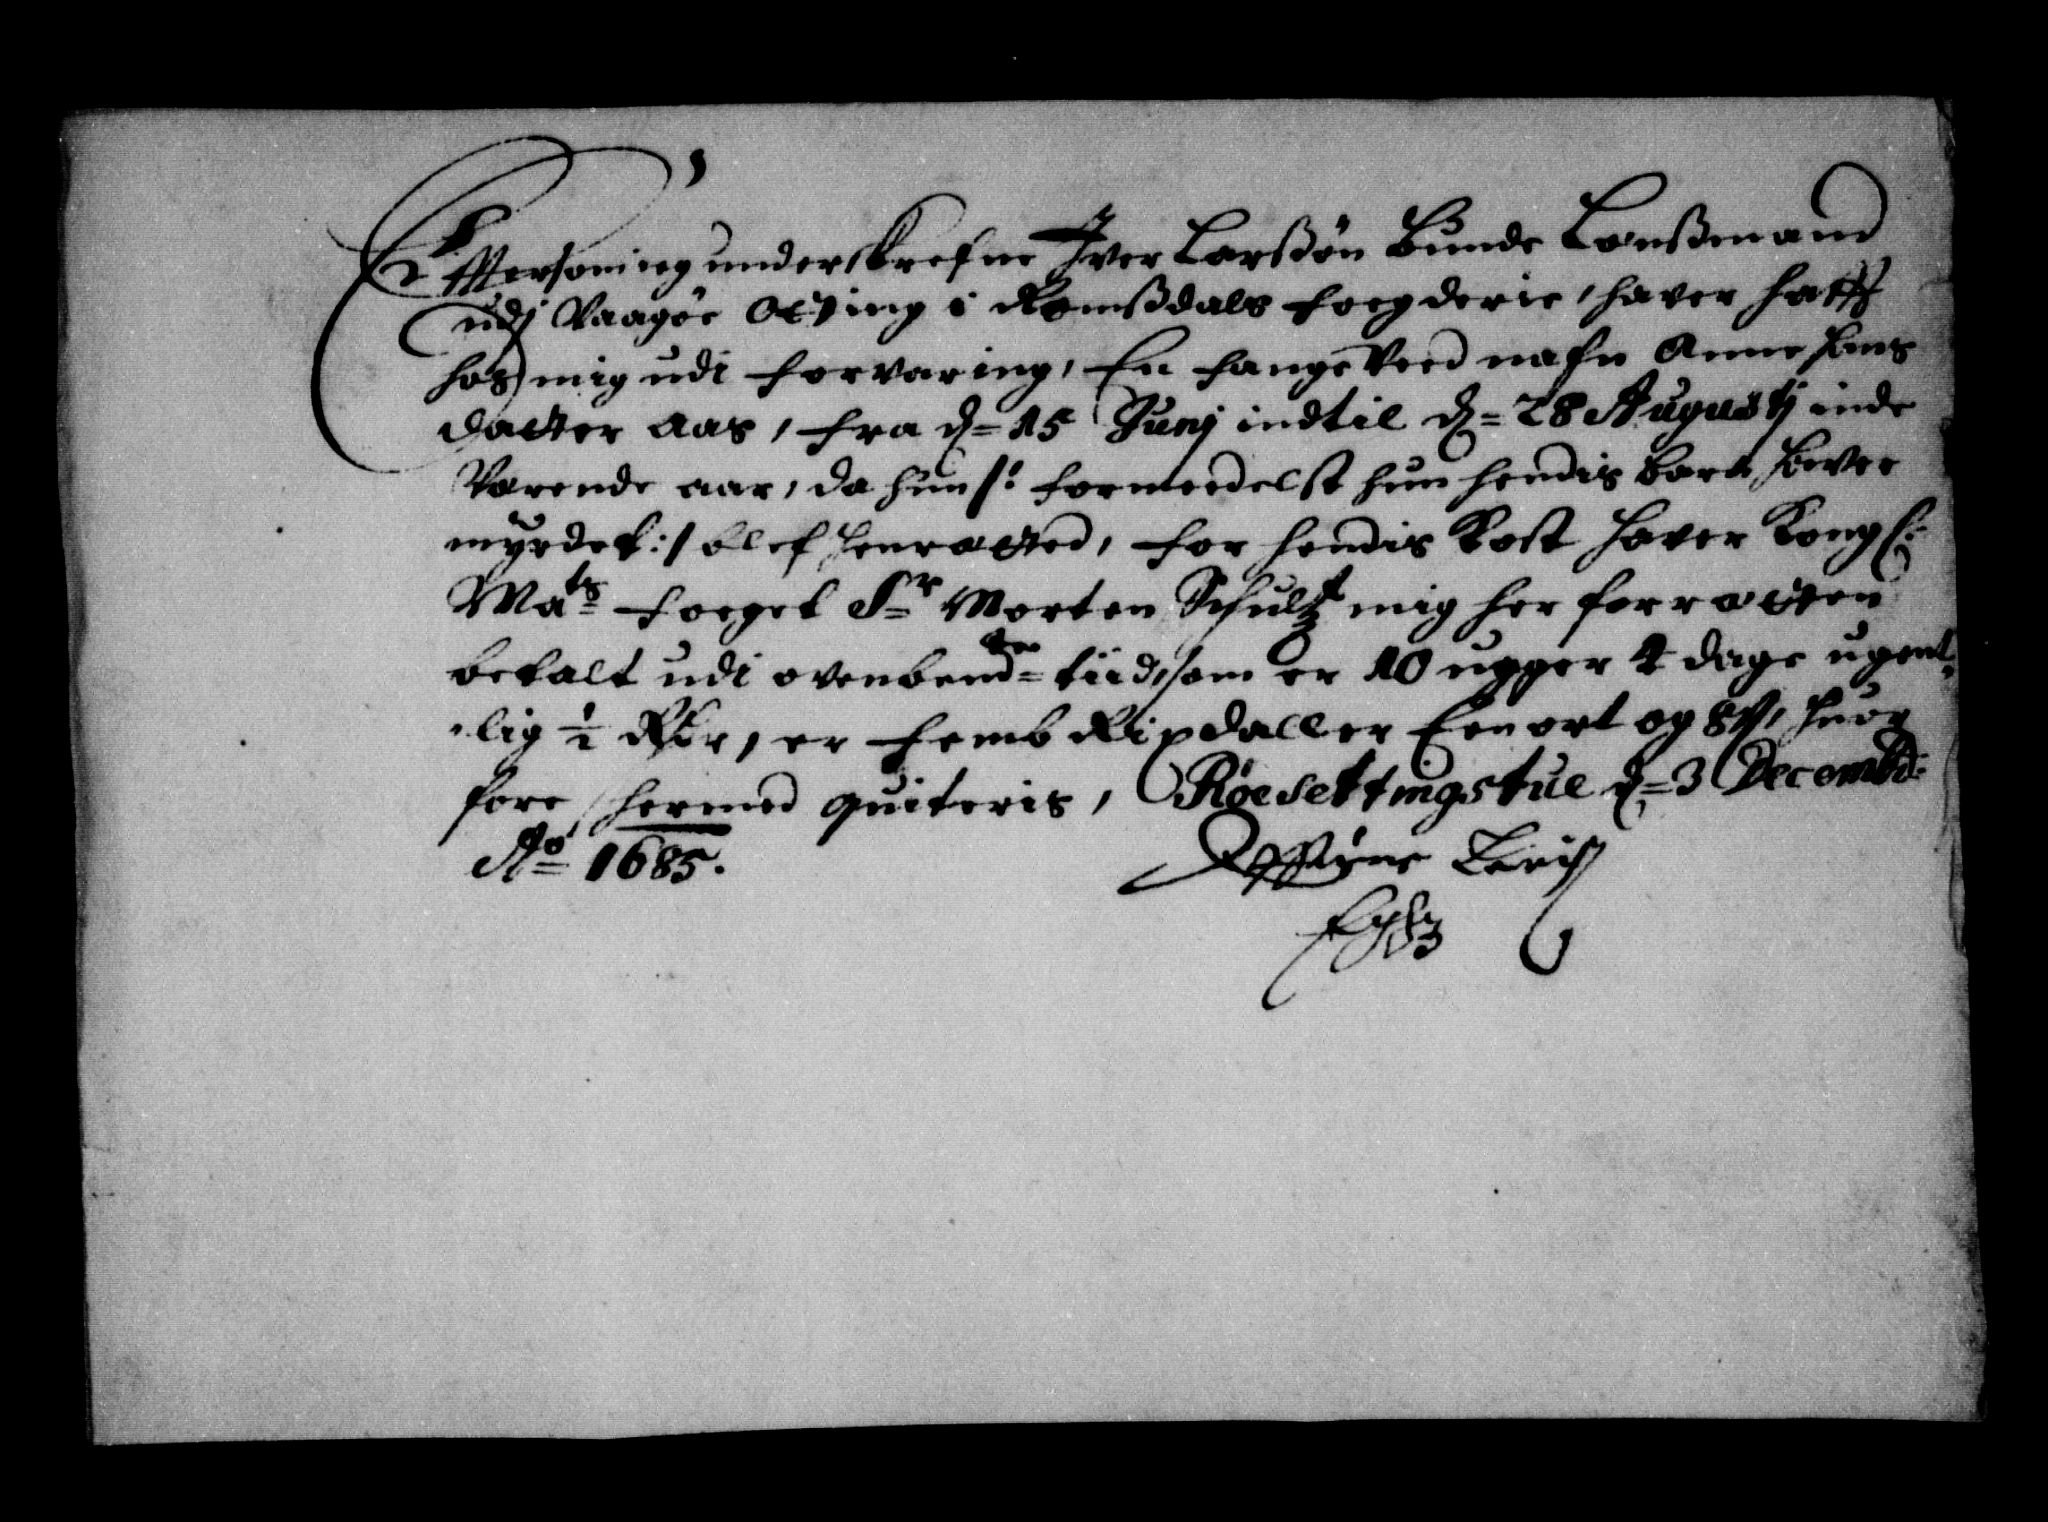 Efftersom ieg underskrefne Iver Larsßøn Bunde Lænßmand
udj Vaagøe Otting i Romßdals fogderie, haver hafft
hos mig udi forvaring, En fange Ved nafn Anne Hans
datter Aas, fra d= 15 Junj indtil d= 28 Augustj inde
Værende aar, da hun /: formedelst hun hendis barn hafver
myrdet :/ blef henrætted, for hendis Kost haver Kongl:
Mats foeget Sr Morten Schultz mig her forretten
betalt udi ovenbemte tiid, som er 10 ugger 4 dage ugent,
,lig ½ Rdr, er femb Rixdaller Een ort og 8 s, huor
fore hermed quiteris, Røesettingstue d= 3 Decembr:
Ao 1685.